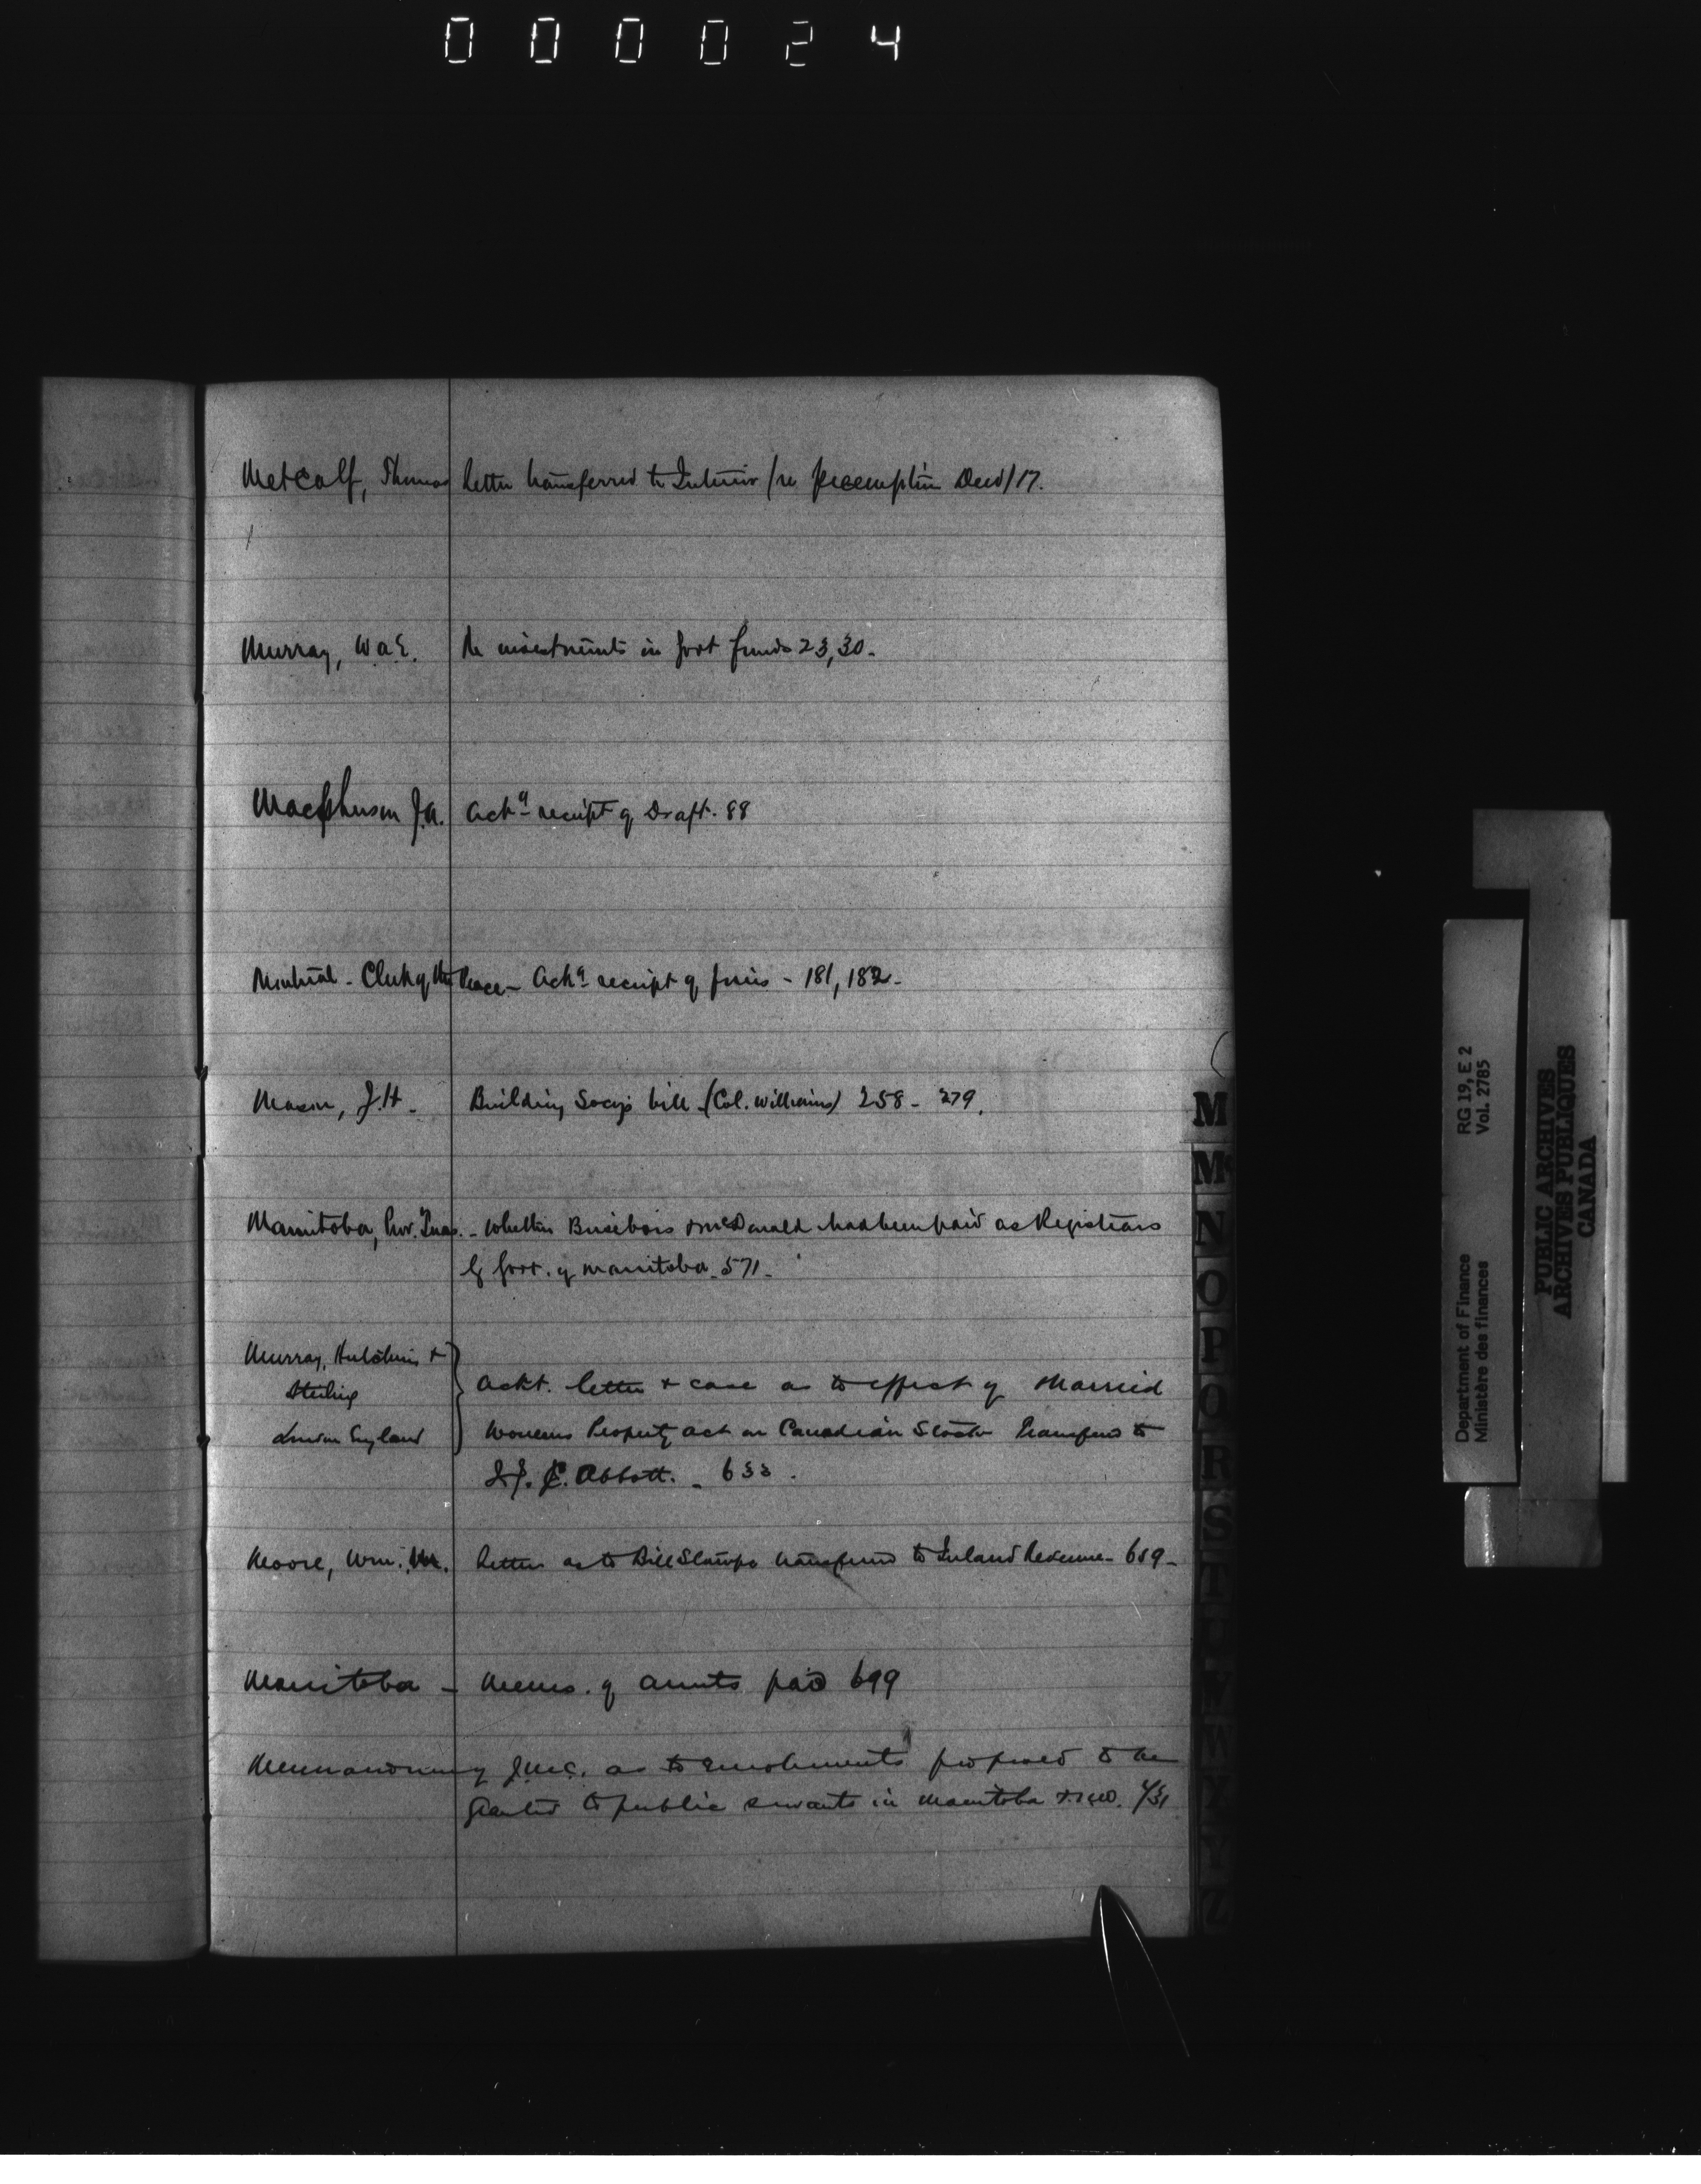 000024
Metcalf, Thomas letter transferred to Interior /re Preemption Deed/ 17.
Murray, W.A.E. Re investments in Govt funds 23, 30.
Macpherson J.A. Ackg receipt of Draft. 88
Montreal - Clerk of the Peace - Ackg receipt of - 181, 182 -
Mason, J.H. - Building Socys bill - (Col. Williams) 258 - 279.
Manitoba, Prov. Treas. - Whether & McDonald had been paid as Registrars
by Govt. of Manitoba. 571 -
Murray, Hutchins &
Stirling
London England
Ackt. letter & case as to effect of Married
Womens Property act on Canadian Stocks transfered to
J.J.C. Abbott. - 633.
Moore, Wm. letter as to Bill Stamps transfered to Inland Revenue - 659 -
Manitoba - Memo. of amts paid 699
Memorandum of J.M.C. as to emoluments proposed to be
granted to public servants in Manitoba
M
M
N
O
P
Q
R
S
T
U
V
W
X
Y
Z
RG 19, E 2
Vol. 2785
Department of Finance
Ministère des finances
PUBLIC ARCHIVES
ARCHIVES PUBLIQUES
CANADA